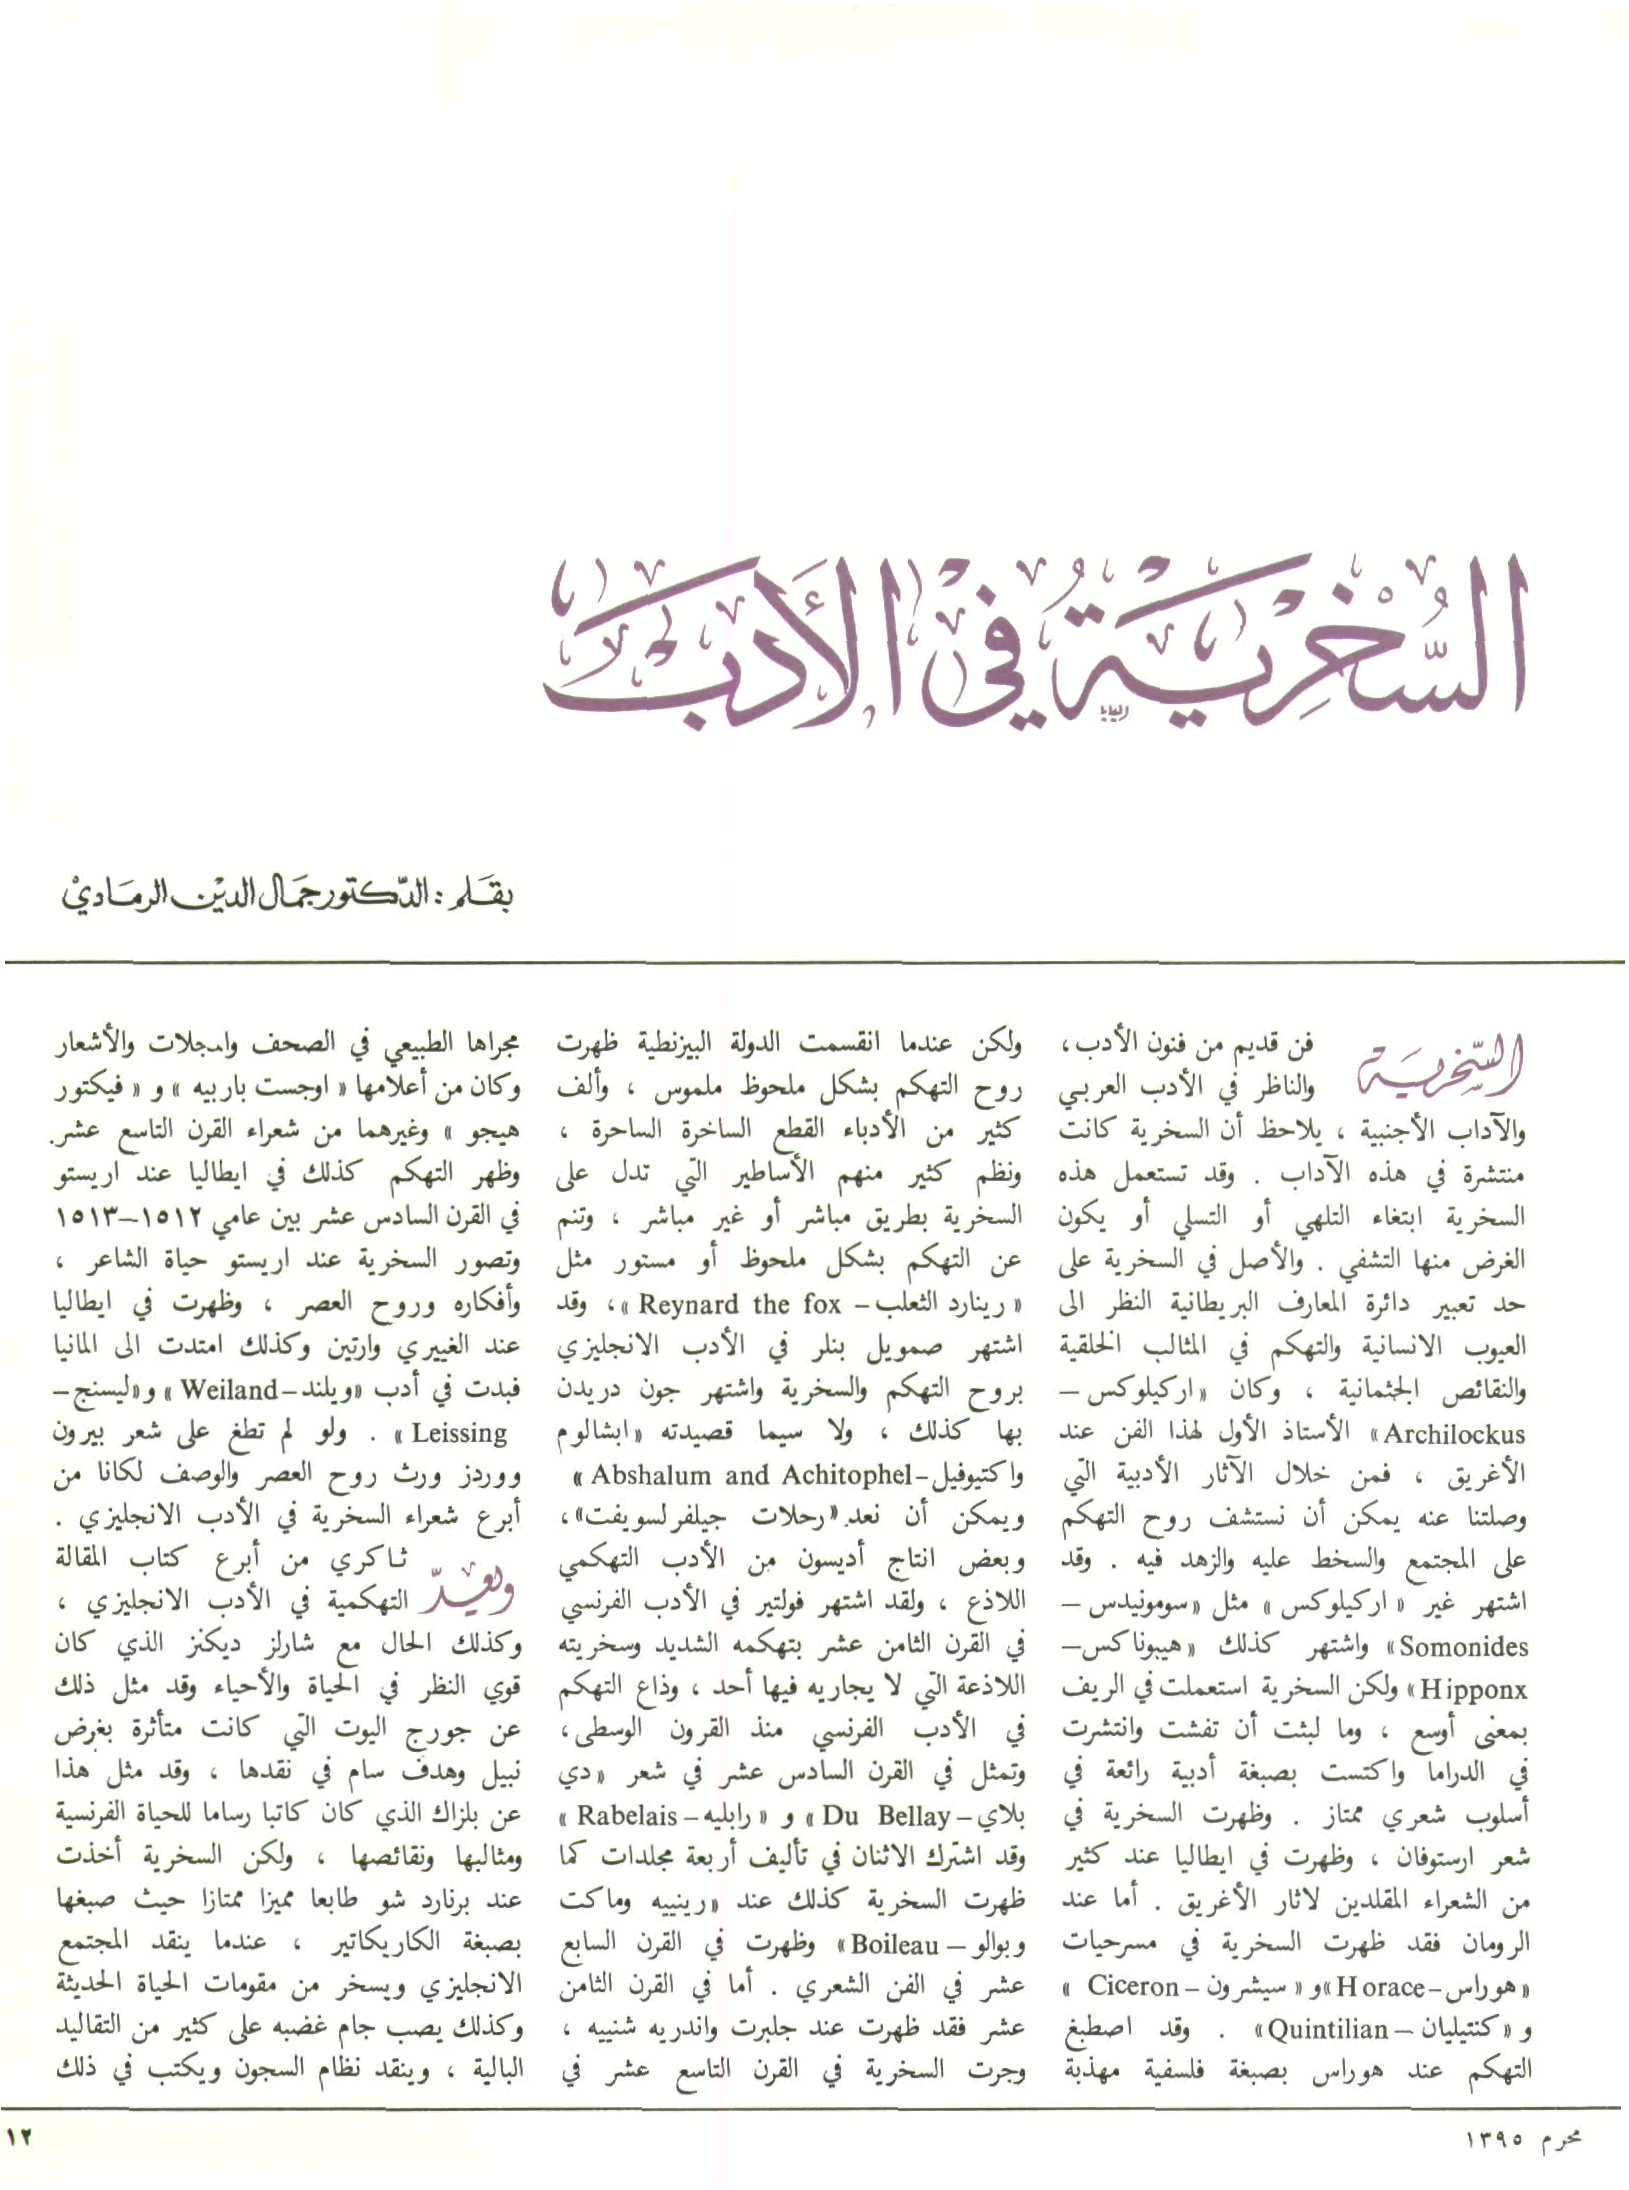 السُّخْرِيَةُ فِي الأَدَبِ
بقلم : الدّكتور جمال الدين الرمادي
السّخرية فن قديم من فنون الأدب ،
والناظر في الأدب العربي
والآداب الأجنبية ، يلاحظ أن السخرية كانت
منتشرة في هذه الآداب . وقد تستعمل هذه
السخرية ابتغاء التلهي أو التسلي أو يكون
الغرض منها التشفي . والأصل في السخرية على
حد تعبير دائرة المعارف البريطانية النظر الى
العيوب الانسانية والتهكم في المثالب الخلقية
والنقائص الجثمانية ، وكان «اركيلوكس –
Archilockus» الأستاذ الأول لهذا الفن عند
الأغريق ، فمن خلال الآثار الأدبية التي
وصلتنا عنه يمكن أن نستشف روح التهكم
على المجتمع والسخط عليه والزهد فيه . وقد
اشتهر غير « اركيلوكس » مثل «سومونيدس –
Somonides» واشتهر كذلك «هيبوناكس –
Hipponx» ولكن السخرية استعملت في الريف
بمعنى أوسع ، وما لبثت أن تفشت وانتشرت
في الدراما واكتست بصبغة أدبية رائعة في
أسلوب شعري ممتاز . وظهرت السخرية في
شعر ارستوفان ، وظهرت في ايطاليا عند كثير
من الشعراء المقلدين لاثار الأغريق . أما عند
الرومان فقد ظهرت السخرية في مسرحيات
«هوراس – Horace» و « سيشرون – Ciceron »
و «كنتيليان – Quintilian» . وقد اصطبغ
التهكم عند هوراس بصبغة فلسفية مهذبة
ولكن عندما انقسمت الدولة البيزنطية ظهرت
روح التهكم بشكل ملحوظ ملموس ، وألف
كثير من الأدباء القطع الساخرة الساحرة ،
ونظم كثير منهم الأساطير التي تدل على
السخرية بطريق مباشر أو غير مباشر ، وتنم
عن التهكم بشكل ملحوظ أو مستور مثل
« رينارد الثعلب – Reynard the fox »، وقد
اشتهر صمويل بنلر في الأدب الانجليزي
بروح التهكم والسخرية واشتهر جون دريدن
بها كذلك ، ولا سيما قصيدته «ابشالوم
واكتيوفيل – Abshalum and Achitophel »
ويمكن أن نعد «رحلات جيلفر لسويفت»،
وبعض انتاج أديسون من الأدب التهكمي
اللاذع ، ولقد اشتهر فولتير في الأدب الفرنسي
في القرن الثامن عشر بتهكمه الشديد وسخريته
اللاذعة التي لا يجاريه فيها أحد ، وذاع التهكم
في الأدب الفرنسي منذ القرون الوسطى ،
وتمثل في القرن السادس عشر في شعر «دي
بلاي – Du Bellay » و « رابليه – Rabelais »
وقد اشترك الاثنان في تأليف أربعة مجلدات كما
ظهرت السخرية كذلك عند «رينييه وماكت
وبوالو – Boileau» وظهرت في القرن السابع
عشر في الفن الشعري . أما في القرن الثامن
عشر فقد ظهرت عند جلبرت واندريه شنييه ،
وجرت السخرية في القرن التاسع عشر في
مجراها الطبيعي في الصحف والمجلات والأشعار
وكان من أعلامها « اوجست باربيه » و « فيكتور
هيجو » وغيرهما من شعراء القرن التاسع عشر.
وظهر التهكم كذلك في ايطاليا عند اريستو
في القرن السادس عشر بين عامي ١٥١٢–١٥١٣
وتصور السخرية عند اريستو حياة الشاعر ،
وأفكاره وروح العصر ، وظهرت في ايطاليا
عند الغييري وارتين وكذلك امتدت الى المانيا
فبدت في أدب «ويلند – Weiland » و«ليسنج –
Leissing » . ولو لم تطغ على شعر بيرون
ووردز ورث روح العصر والوصف لكانا من
أبرع شعراء السخرية في الأدب الانجليزي .
ويعدّ ثاكري من أبرع كتاب المقالة
التهكمية في الأدب الانجليزي ،
وكذلك الحال مع شارلز ديكنز الذي كان
قوي النظر في الحياة والأحياء وقد مثل ذلك
عن جورج اليوت التي كانت متأثرة بغرض
نبيل وهدف سام في نقدها ، وقد مثل هذا
عن بلزاك الذي كان كاتبا رساما للحياة الفرنسية
ومثالبها ونقائصها ، ولكن السخرية أخذت
عند برنارد شو طابعا مميزا ممتازا حيث صبغها
بصبغة الكاريكاتير ، عندما ينقد المجتمع
الانجليزي ويسخر من مقومات الحياة الحديثة
وكذلك يصب جام غضبه على كثير من التقاليد
البالية ، وينقد نظام السجون ويكتب في ذلك
محرم ١٣٩٥
١٢